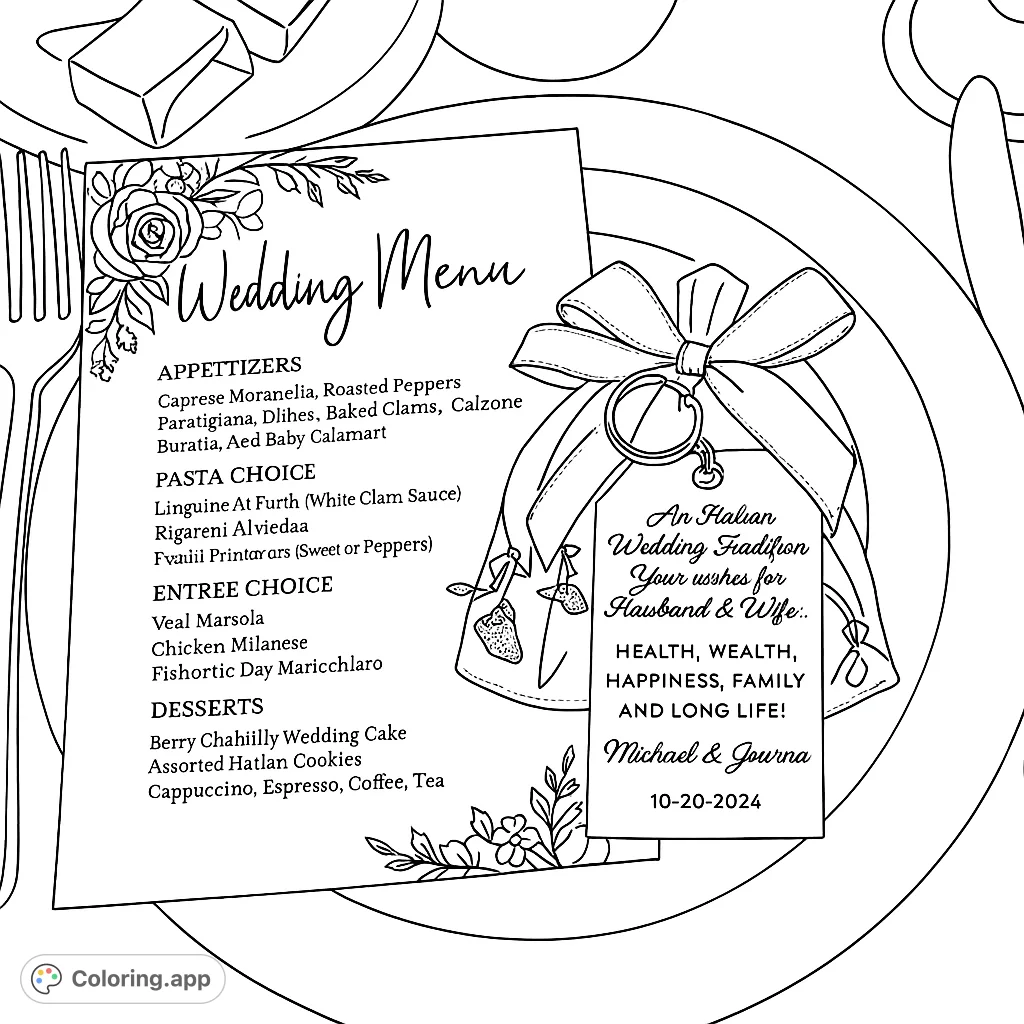 Wedding Menu
APPETTIZERS
Caprese Moranelia, Roasted Peppers
Paratigiana, Dlihes, Baked Clams, Calzone
Buratia, Aed Baby Calamart
PASTA CHOICE
Linguine At Furth (White Clam Sauce)
Rigareni Alviedaa
(Sweet or Peppers)
ENTREE CHOICE
Veal Marsola
Chicken Milanese
Fishortic Day Maricchlaro
DESSERTS
Berry Chahiilly Wedding Cake
Assorted Hatlan Cookies
Cappuccino, Espresso, Coffee, Tea
An Halian
Wedding
Your usshes for
Hausband & Wife:.
HEALTH, WEALTH,
HAPPINESS, FAMILY
AND LONG LIFE!
Michael & Journa
10-20-2024
Coloring.app